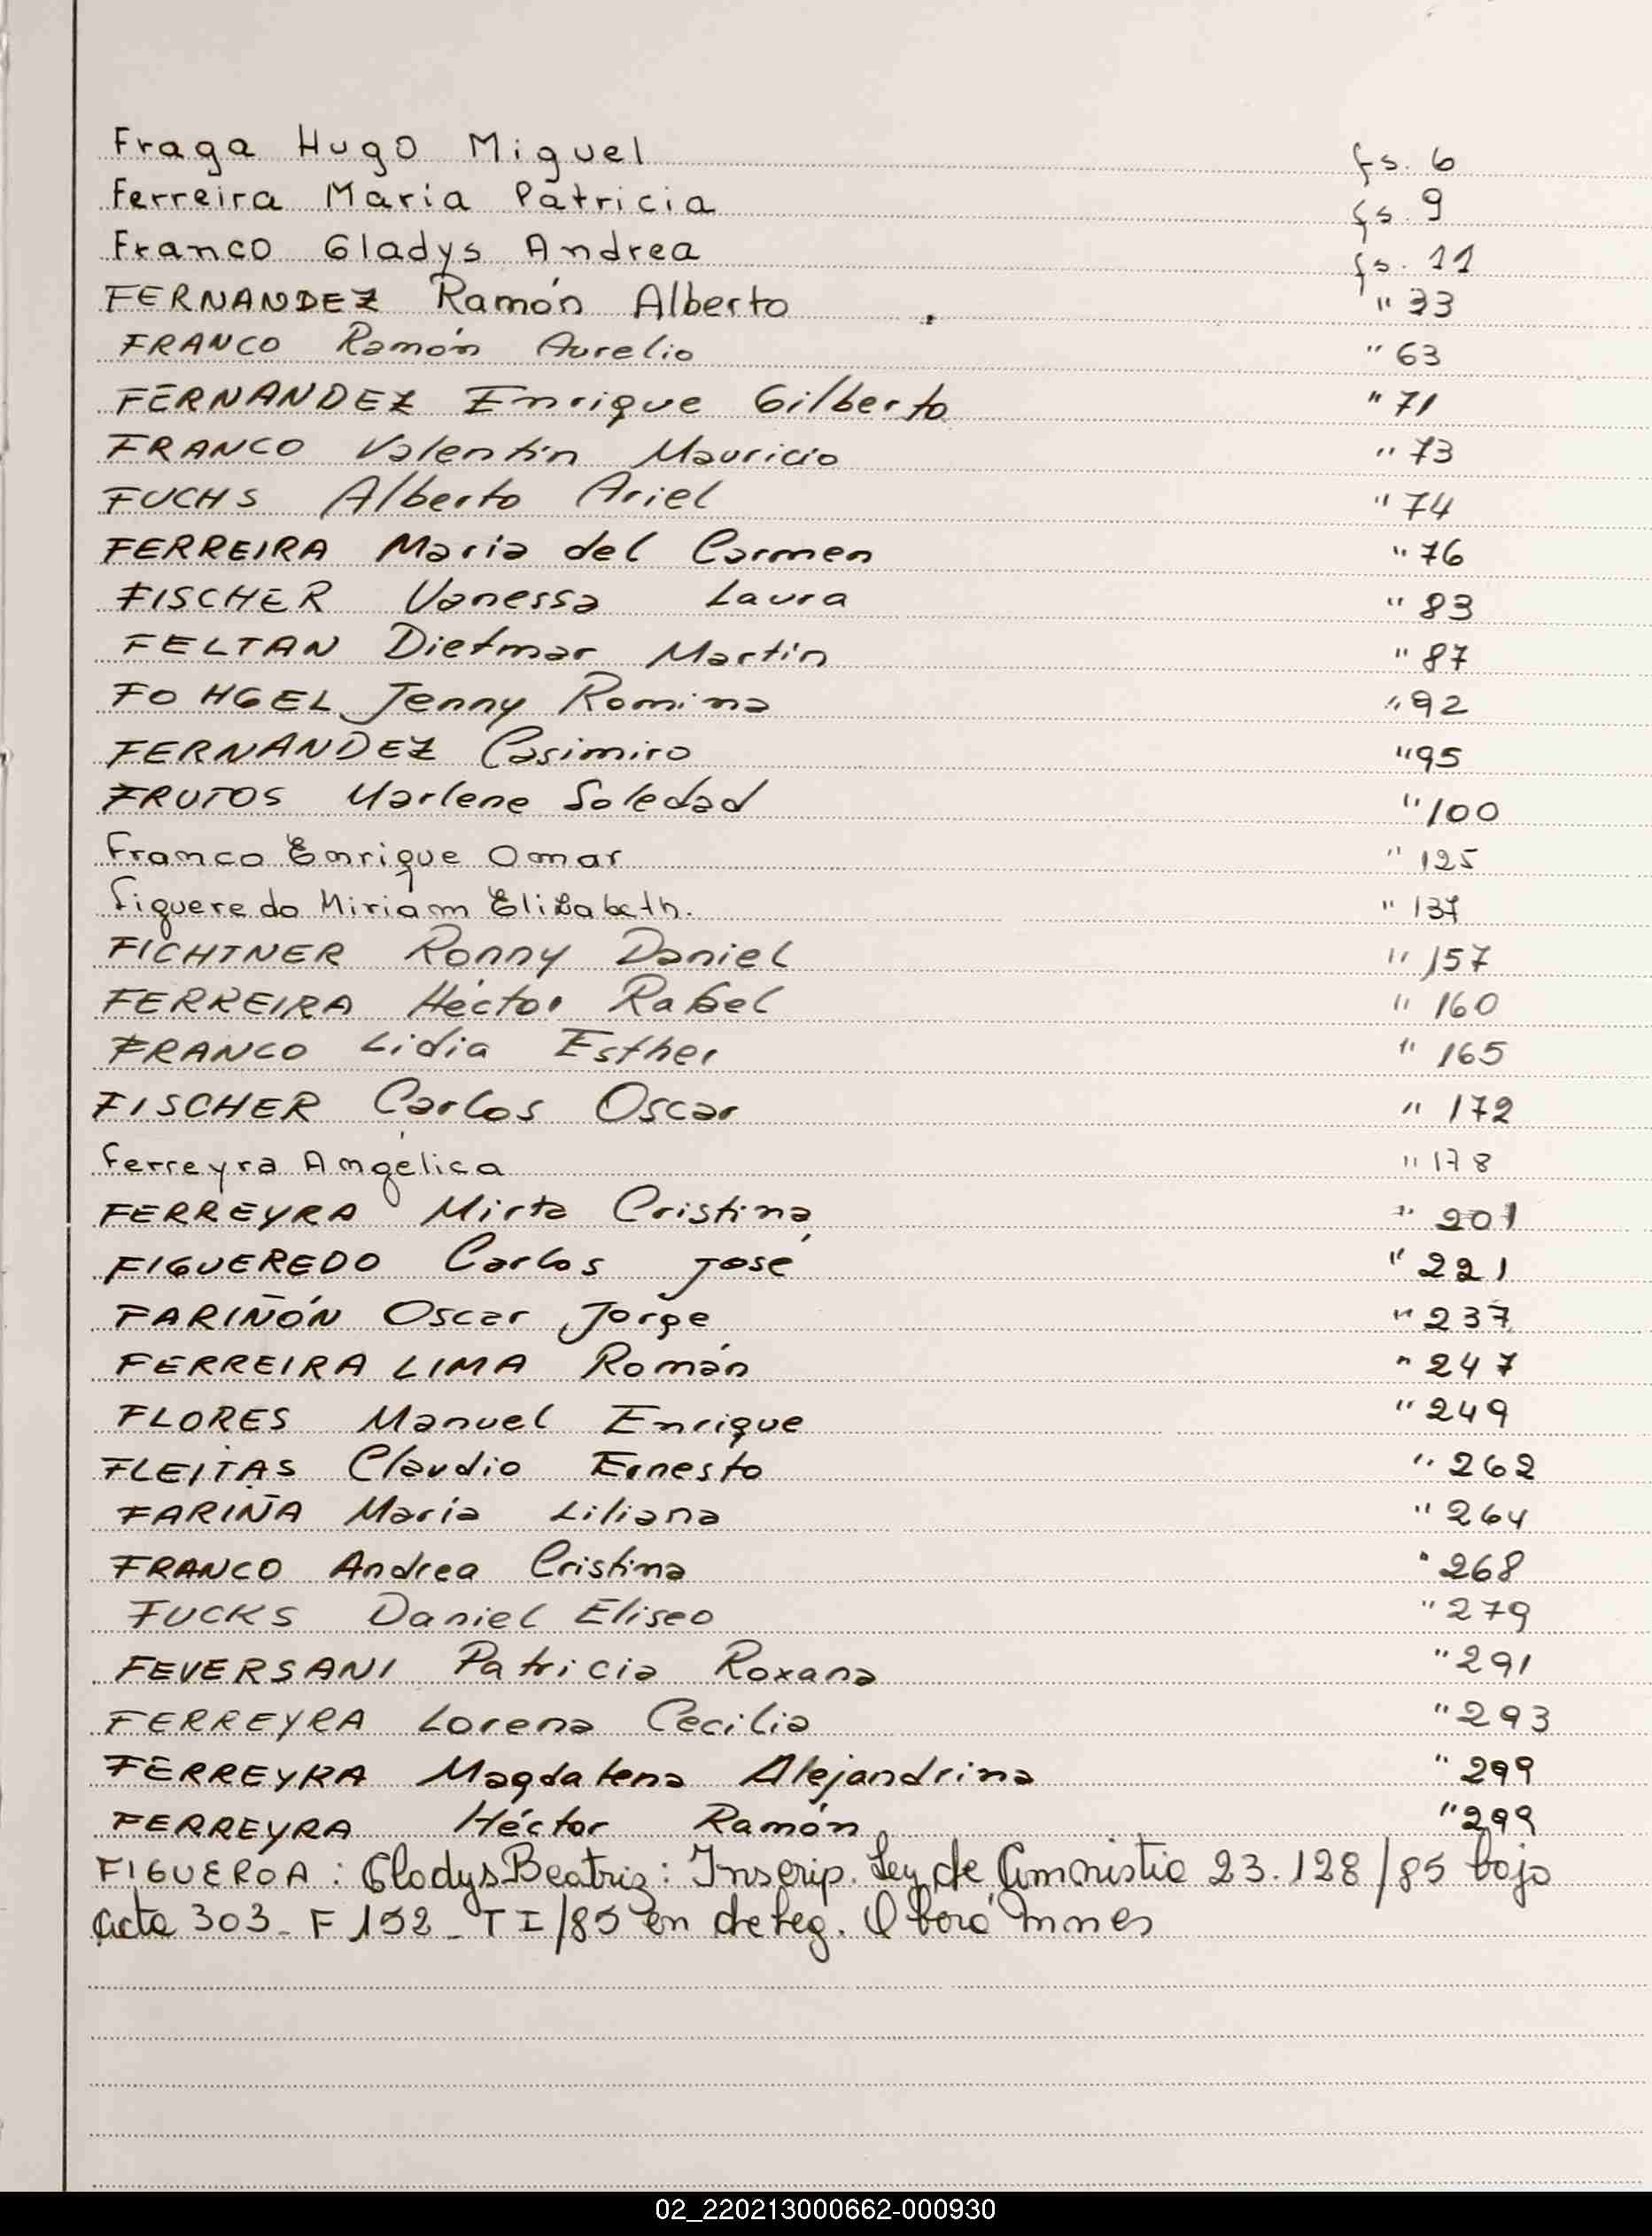 Fraga Hugo Miguel fs. 6
Ferreira María Patricia fs. 9
Franco Gladys Andrea fs. 11
FERNANDEZ Ramón Alberto " 33
FRANCO Ramón Aurelio " 63
FERNANDEZ Enrique Gilberto " 71
FRANCO Valentín Mauricio " 73
FUCHS Alberto Ariel " 74
FERREIRA María del Carmen " 76
FISCHER Vanessa Laura " 83
FELTAN Dietmar Martín " 87
FOHGEL Jenny Romina " 92
FERNANDEZ Casimiro " 95
FRUTOS Marlene Soledad " 100
Franco Enrique Omar " 125
Figueredo Miriam Elizabeth. " 137
FICHTNER Ronny Daniel " 157
FERREIRA Héctor Rafael " 160
FRANCO Lidia Esther " 165
FISCHER Carlos Oscar " 172
Ferreyra Angélica " 178
FERREYRA Mirta Cristina " 201
FIGUEREDO Carlos José " 221
FARIÑÓN Oscar Jorge " 237
FERREIRA LIMA Román " 247
FLORES Manuel Enrique " 249
FLEITAS Claudio Ernesto " 262
FARIÑA María Liliana " 264
FRANCO Andrea Cristina " 268
FUCKS Daniel Eliseo " 279
FEVERSANI Patricia Roxana " 291
FERREYRA Lorena Cecilia " 293
FERREYRA Magdalena Alejandrina " 299
FERREYRA Héctor Ramón " 299
FIGUEROA: Gladys Beatriz: Inscrip. Ley de Amnistia 23.128/85 bajo
acta 303_ F 152_ T I/85 en deleg. Oberá Mnes
02_220213000662-000930